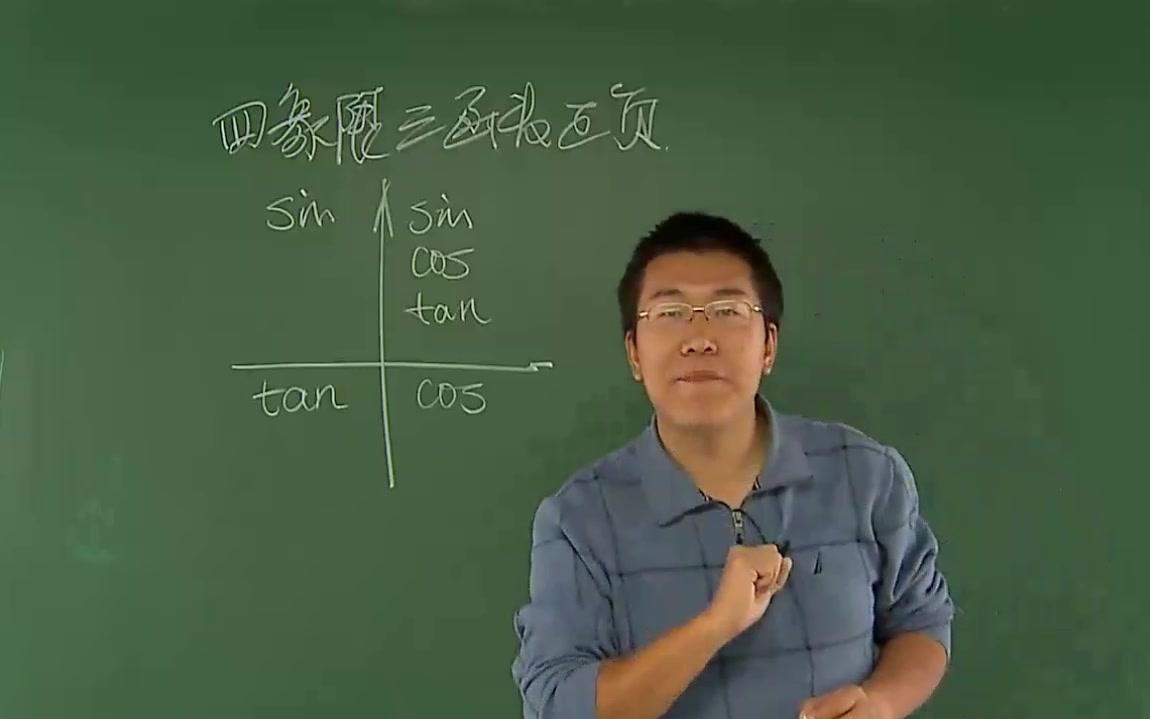 四象限三函数正负
sin sin
cos
tan
tan cos